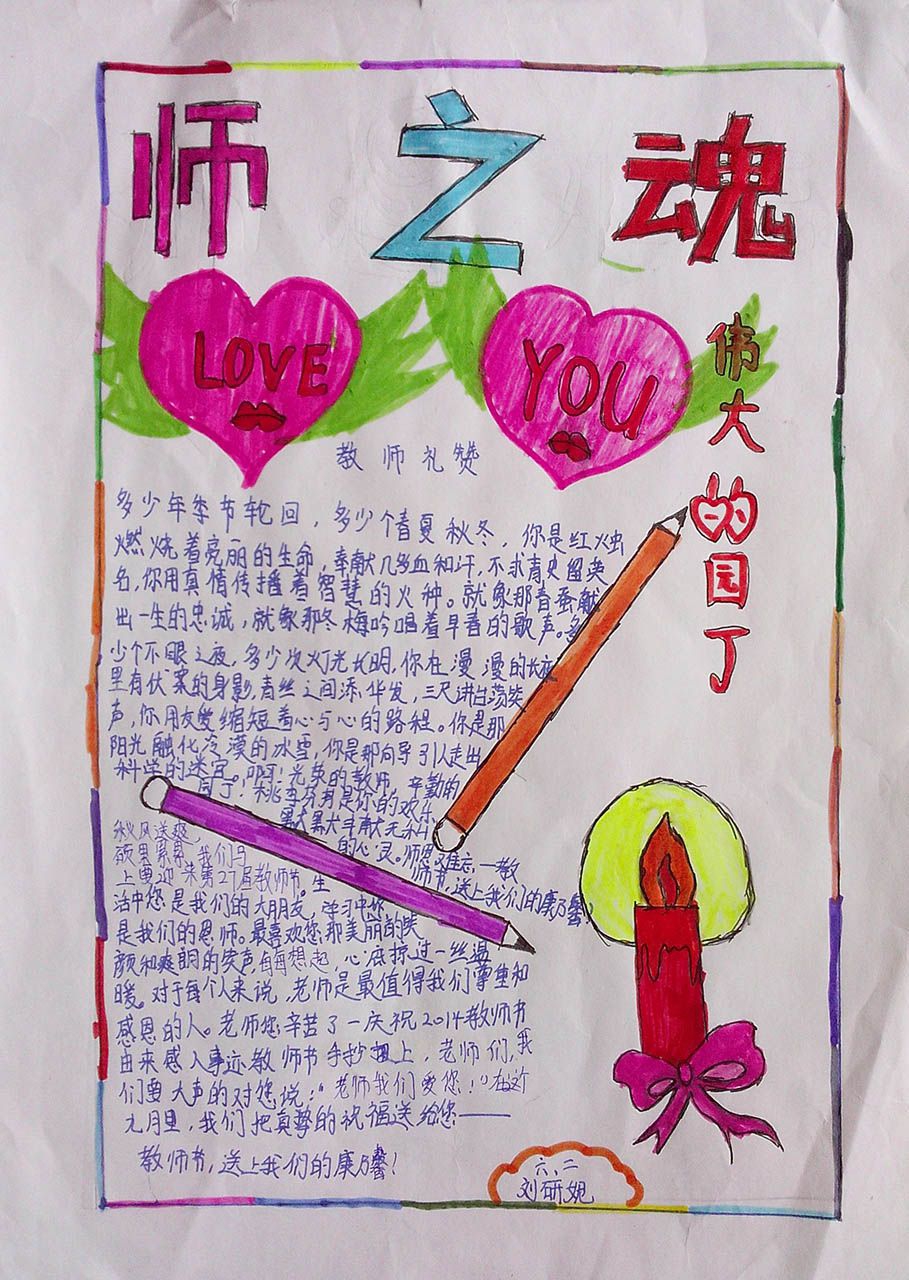 师之魂
LOVE
YOU
伟大的园丁
教师礼赞
多少年季节轮回，多少个春夏秋冬，你是红烛
燃烧着亮丽的生命，奉献几多血和汗，不求青史留英
名，你用真情传播着智慧的火种。就象那春蚕献
出一生的忠诚，就象那冬梅吟唱着早春的歌声。多
少个不眠之夜，多少次灯光长明，你在漫漫的长夜
里有伏案的身影，青丝之间添华发，三尺讲台荡笑
声，你用友爱缩短着心与心的路程。你是那
阳光融化冷漠的冰雪，你是那向导引人走出
科学的迷宫。啊！光荣的教师 辛勤的
园丁！桃李芬芳是你的欢乐
默默奉献无私
的心灵。师恩难忘，一教
秋风送爽，
硕果累累，我们与
师节，送上我们的康乃馨
上奥迎来第27届教师节。生
活中您是我们的大朋友，学习中您
是我们的恩师。最喜欢您那美丽的
颜和爽朗的笑声每每想起，心底掠过一丝温
暖。对于每个人来说，老师是最值得我们尊重和
感恩的人。老师您辛苦了一庆祝2014教师节
由来感人事迹教师节手抄报上，老师们，我
们要大声的对您说：“老师我们爱您！”在这个
九月里，我们把真挚的祝福送给您——
教师节，送上我们的康乃馨！
六、二
刘研妮